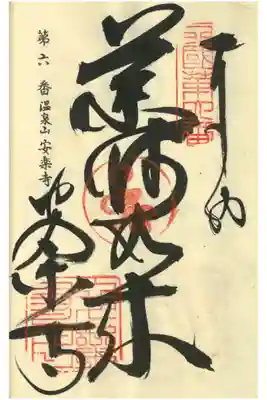 奉納
薬師如来
安楽寺
第六番温泉山安楽寺